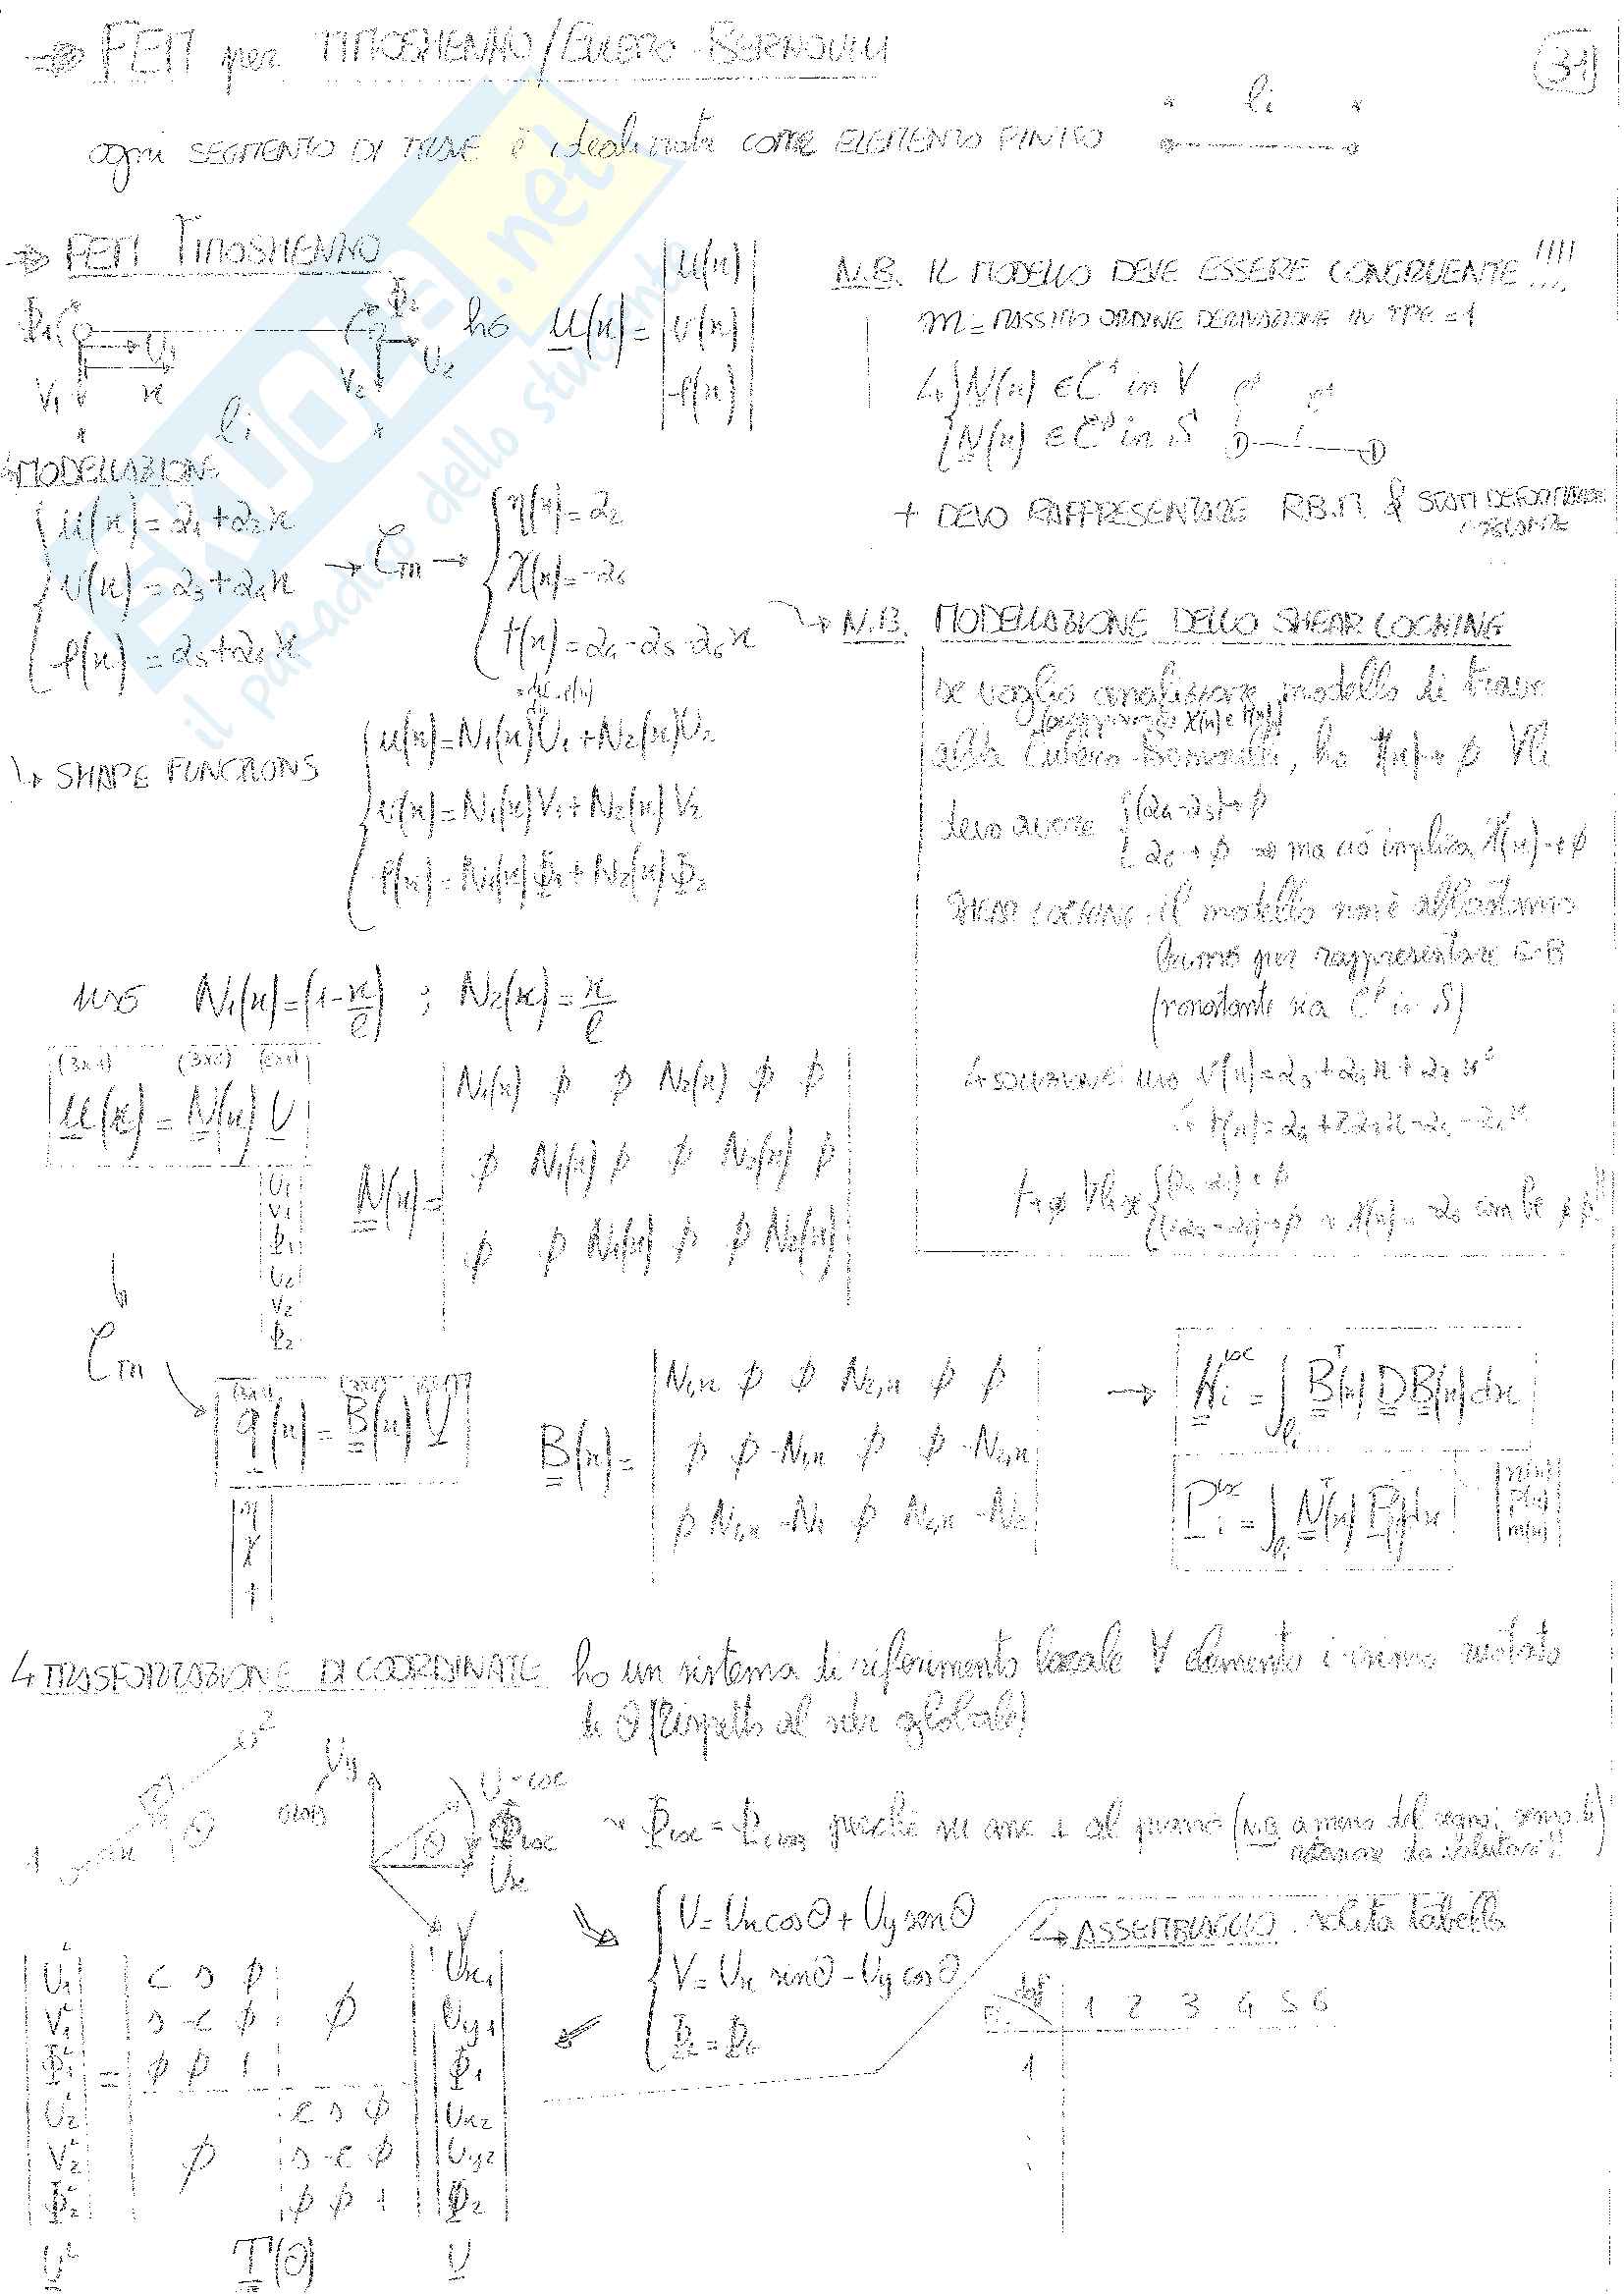 → FEM per TIMOSHENKO/EULERO-BERNOULLI
31
ogni SEGMENTO DI TRAVE è idealizzata come ELEMENTO FINITO
li
→ FEM TIMOSHENKO
Φ1 U1 V1 x li
Φ2 U2 V2
ho u(x) = |u(x) v(x) φ(x)|
N.B. IL MODELLO DEVE ESSERE CONGRUENTE !!!!
m = MASSIMO ORDINE DERIVAZIONE IN TPE = 1
↳ N(x) ∈ C¹ in V
N(x) ∈ C⁰ in S
+ DEVO RAPPRESENTARE R.B.M. & STATI DEFORMAZIONE COSTANTE
↳ MODELLAZIONE
u(x) = α1 + α2x
v(x) = α3 + α4x
φ(x) = α5 + α6x
→ Cm →
η(x) = α2
χ(x) = -α6
t(x) = α4 - α5 - α6x
→ N.B. MODELLAZIONE DELLO SHEAR LOCKING
se voglio analizzare modello di trave
alla Eulero-Bernoulli, ho t(x) → ∅ ∀li
devo avere (α4-α5) → ∅
α6 → ∅ → ma ciò implica χ(x) → ∅
SHEAR LOCKING: il modello non è abbastanza
buono per rappresentare E-B
(nonostante sia C⁰ in S)
↳ SOLUZIONE: uso v(x) = α3 + α4x + α7x²
t(x) = α4 + 2α7x - α5 - α6x
↳ SHAPE FUNCTIONS
u(x) = N1(x)U1 + N2(x)U2
v(x) = N1(x)V1 + N2(x)V2
φ(x) = N1(x)Φ1 + N2(x)Φ2
uso N1(x) = (1 - x/l) ; N2(x) = x/l
(3x1) (3x6) (6x1)
u(x) = N(x) U
U1
V1
Φ1
U2
V2
Φ2
N(x) =
N1(x) ∅ ∅ N2(x) ∅ ∅
∅ N1(x) ∅ ∅ N2(x) ∅
∅ ∅ N1(x) ∅ ∅ N2(x)
Cm
q(x) = B(x) U
η
χ
t
B(x) =
N1,x ∅ ∅ N2,x ∅ ∅
∅ ∅ -N1,x ∅ ∅ -N2,x
∅ N1,x -N1 ∅ N2,x -N2
→ Ki^loc = ∫li B^T(x) D B(x) dx
Pi^loc = ∫li N^T(x) P(x) dx
n(x)
p(x)
m(x)
↳ TRASFORMAZIONE DI COORDINATE ho un sistema di riferimento locale ∀ elemento i-esimo ruotato
di θ (rispetto al sdr globale)
1 x θ 2
GLOB Uy Ux θ U LOC V Φloc
→ Φloc = Φglob perchè su asse ⊥ al piano (N.B. a meno del segno: senso di
rotazione da valutare!!)
U = Ux cosθ + Uy senθ
V = Ux sinθ - Uy cosθ
ΦL = ΦG
↳ ASSEMBLAGGIO: solita tabella
e. dof 1 2 3 4 5 6
1
U1^L c s ∅ Ux1
V1^L s -c ∅ ∅ Uy1
Φ1^L = ∅ ∅ 1 Φ1
U2^L c s ∅ Ux2
V2^L ∅ s -c ∅ Uy2
Φ2^L ∅ ∅ 1 Φ2
U^L T(θ) U
SKUOLA.net
il paradiso dello studente